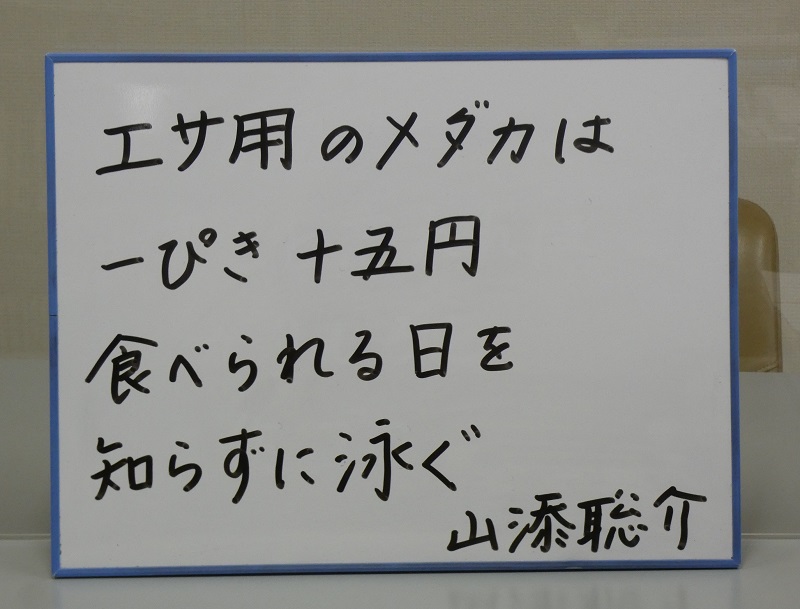 エサ用のメダカは
一ぴき十五円
食べられる日を
知らずに泳ぐ
山添聡介